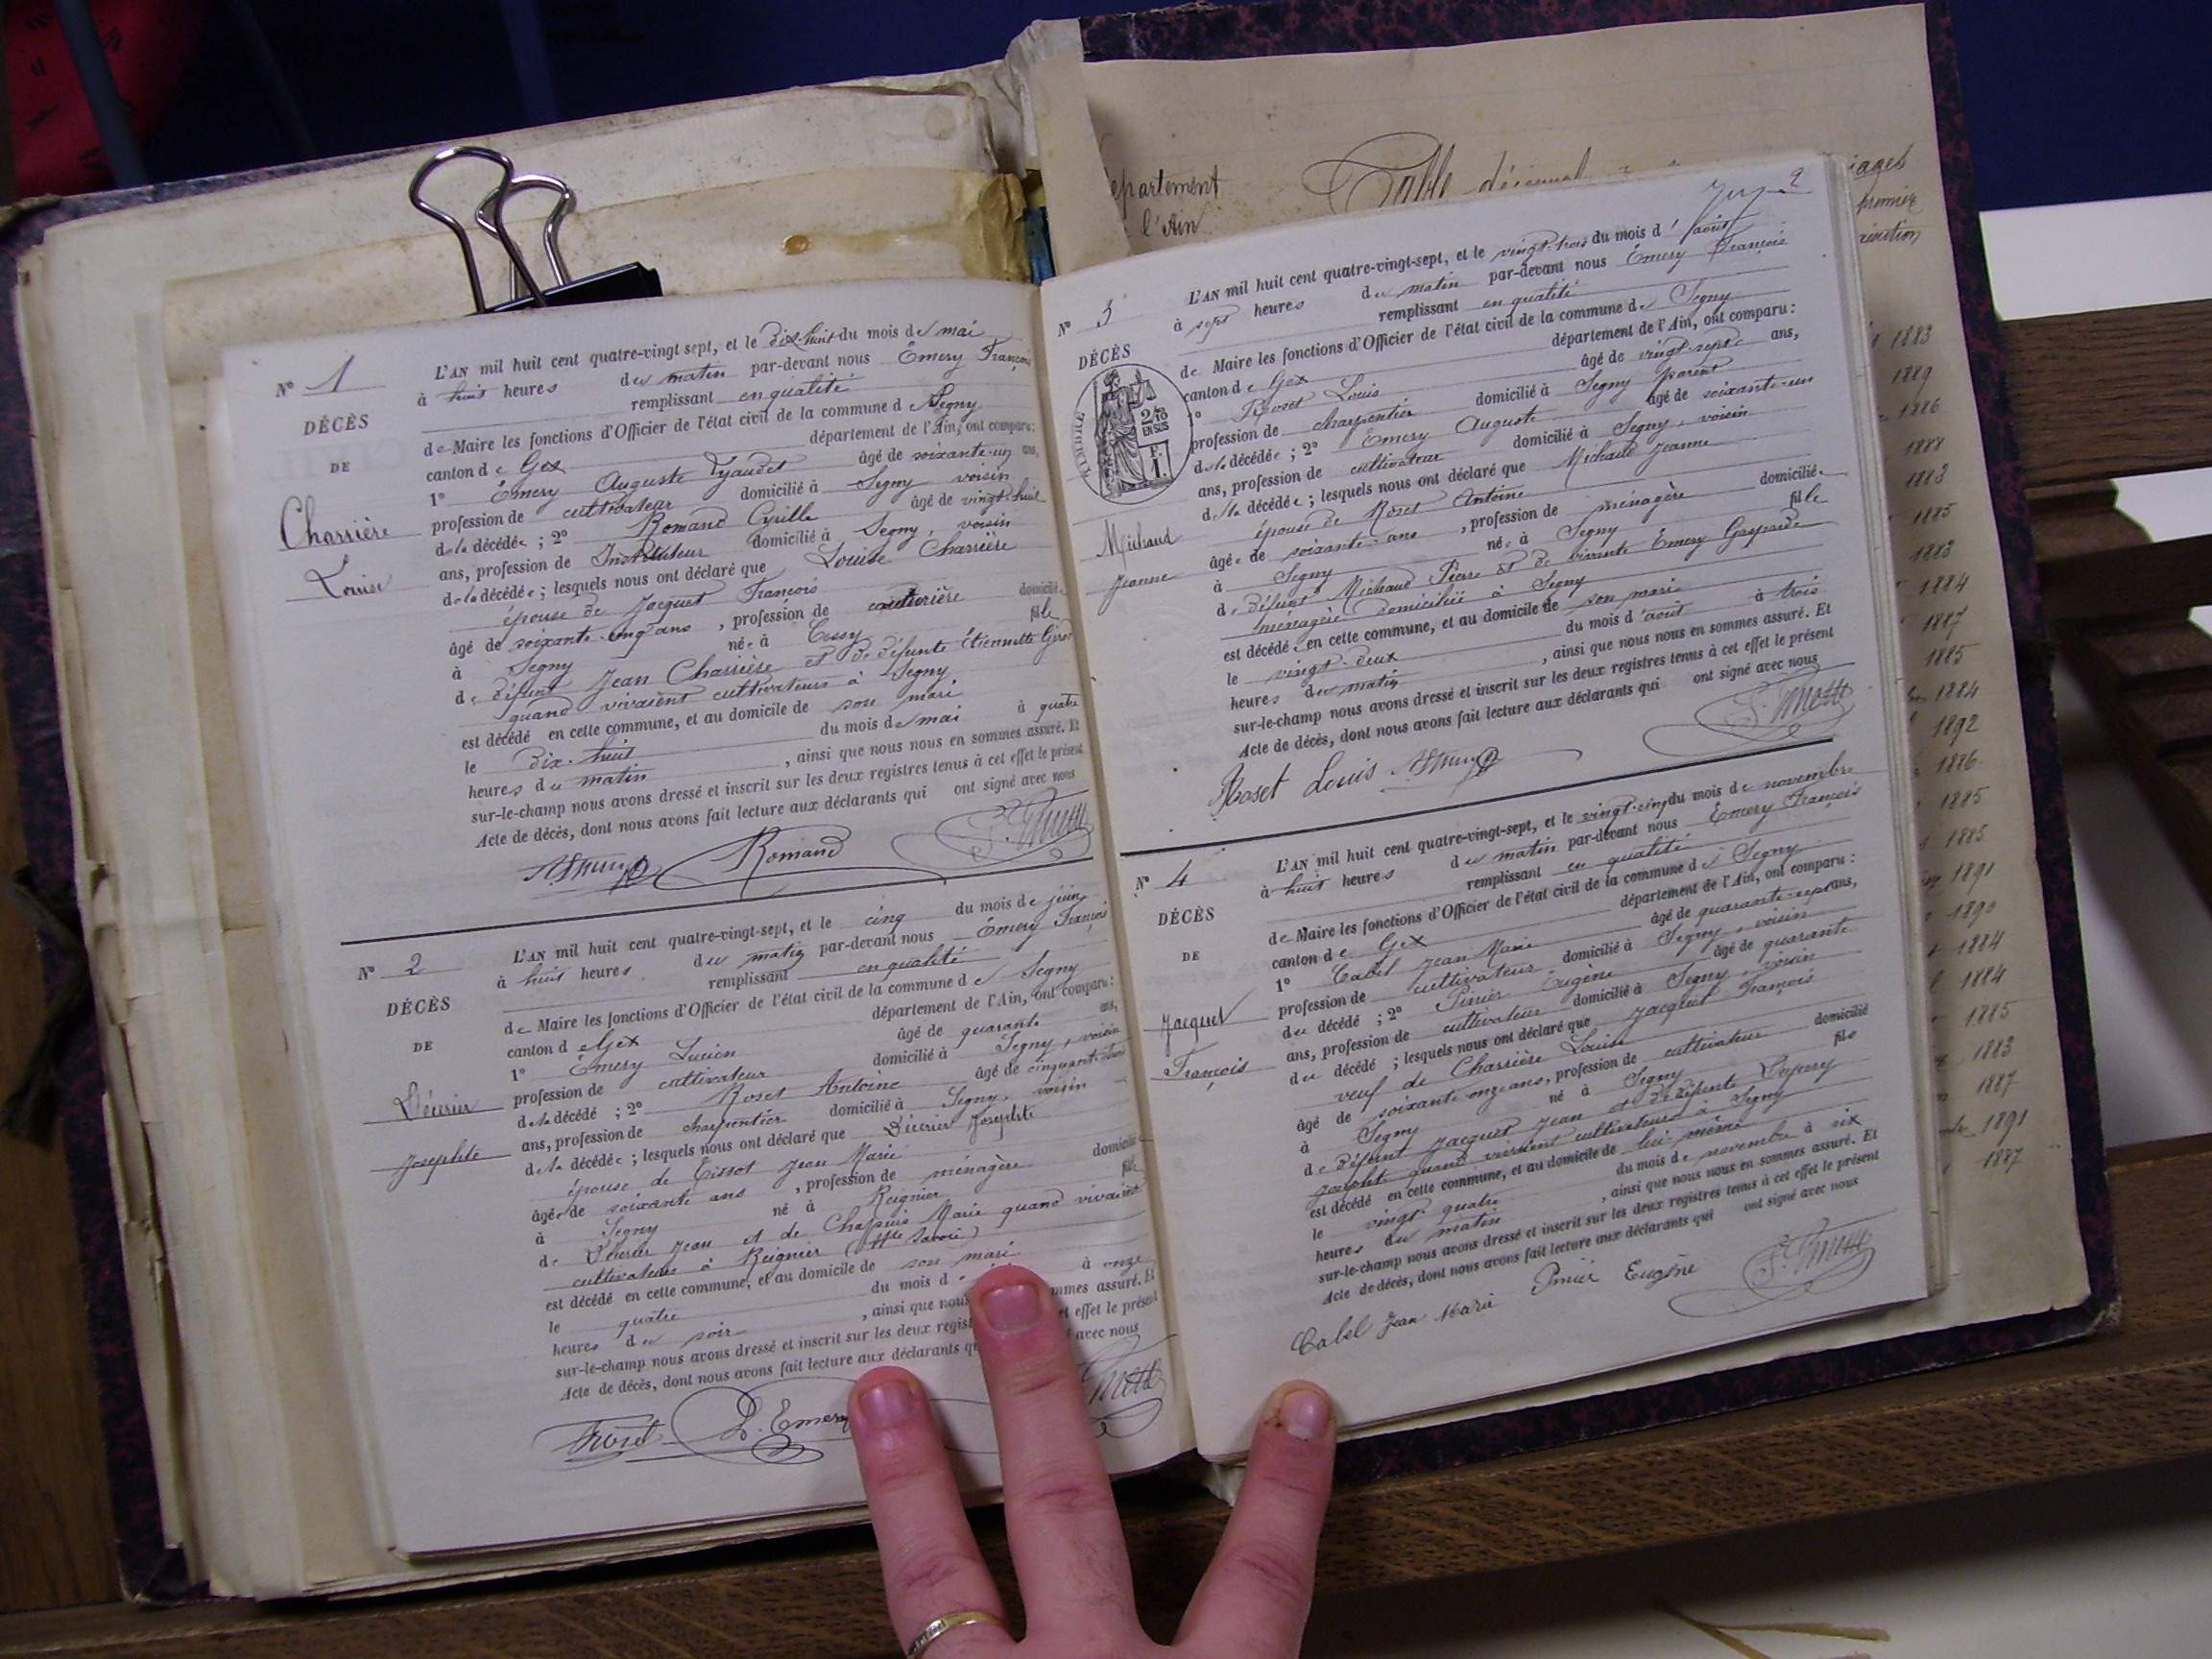 Nº 1
DÉCÈS
DE
Charrière
Louise
L'AN mil huit cent quatre-vingt-sept, et le dix-huit du mois de mai
à huit heures du matin par-devant nous Émery François
remplissant en qualité
de Maire les fonctions d'Officier de l'état civil de la commune de Segny
canton de Gex département de l'Ain, ont comparu:
1º Émery Auguste âgé de soixante-un ans,
profession de cultivateur domicilié à Segny voisin
de la décédée; 2º Romand Cyrille âgé de vingt-huit
ans, profession de Instituteur domicilié à Segny, voisin
de la décédée; lesquels nous ont déclaré que Louise Charrière
épouse de Jacquet François
âgé de soixante-cinq ans, profession de couturière domicilié
à Segny née à Cessy fille
de défunt Jean Charrière et de défunte Étiennette
quand vivaient cultivateurs à Segny
est décédé en cette commune, et au domicile de son mari
le dix-huit du mois de mai à quatre
heures du matin, ainsi que nous nous en sommes assuré. Et
sur-le-champ nous avons dressé et inscrit sur les deux registres tenus à cet effet le présent
Acte de décès, dont nous avons fait lecture aux déclarants qui ont signé avec nous
Romand
Nº 2
DÉCÈS
DE
Décrier
Josephte
L'AN mil huit cent quatre-vingt-sept, et le cinq du mois de juin
à huit heures du matin par-devant nous Émery François
remplissant en qualité
de Maire les fonctions d'Officier de l'état civil de la commune de Segny
canton de Gex département de l'Ain, ont comparu:
1º Émery Lucien âgé de quarante ans,
profession de cultivateur domicilié à Segny, voisin
de la décédé; 2º Roset Antoine âgé de cinquante-trois
ans, profession de charpentier domicilié à Segny, voisin
de la décédée; lesquels nous ont déclaré que Décrier Josephte
épouse de Tissot Jean Marie
âgée de soixante ans, profession de ménagère domicilié
à Segny né à Reignier fille
de Décrier Jean et de Chapuis Marie quand vivaient
cultivateurs à Reignier (Hte Savoie)
est décédé en cette commune, et au domicile de son mari
le quatre du mois d à onze
heures du soir, ainsi que nous mmes assuré. Et
sur-le-champ nous avons dressé et inscrit sur les deux regist et effet le présent
Acte de décès, dont nous avons fait lecture aux déclarants q avec nous
Roset L. Emery
epartement
l'Ain
Table
iages
premier
2
Nº 3
DÉCÈS
TIMBRE
2/10
EN SUS
F.
1.
Michaud
Jeanne
L'AN mil huit cent quatre-vingt-sept, et le vingt-trois du mois d'août
à sept heures du matin par-devant nous Émery François
remplissant en qualité
de Maire les fonctions d'Officier de l'état civil de la commune de Segny
canton de Gex département de l'Ain, ont comparu:
1º Roset Louis âgé de vingt-sept ans,
profession de charpentier domicilié à Segny parent
de la décédée; 2º Émery Auguste âgé de soixante-un
ans, profession de cultivateur domicilié à Segny, voisin
de la décédée; lesquels nous ont déclaré que Michaud Jeanne
épouse de Roset Antoine
âgée de soixante ans, profession de ménagère domiciliée
à Segny née à Segny fille
de défunt Michaud Pierre et de vivante Émery Gasparde
ménagère domiciliée à Segny
est décédée en cette commune, et au domicile de son mari
le vingt-deux du mois d'août à trois
heures du matin, ainsi que nous nous en sommes assuré. Et
sur-le-champ nous avons dressé et inscrit sur les deux registres tenus à cet effet le présent
Acte de décès, dont nous avons fait lecture aux déclarants qui ont signé avec nous
Roset Louis
Nº 4
DÉCÈS
DE
Jacquet
François
L'AN mil huit cent quatre-vingt-sept, et le vingt-cinq du mois de novembre
à huit heures du matin par-devant nous Émery François
remplissant en qualité
de Maire les fonctions d'Officier de l'état civil de la commune de Segny
canton de Gex département de l'Ain, ont comparu:
1º Cabel Jean Marie âgé de quarante-sept ans,
profession de cultivateur domicilié à Segny, voisin
du décédé; 2º Pinier Eugène âgé de quarante
ans, profession de cultivateur domicilié à Segny, voisin
du décédé; lesquels nous ont déclaré que Jacquet François
veuf de Charrière Louise
âgé de soixante onze ans, profession de cultivateur domicilié
à Segny né à Segny fils
de défunt Jacquet Jean et de défunte
Josephte quand vivaient cultivateurs à Segny
est décédé en cette commune, et au domicile de lui-même
le vingt-quatre du mois de novembre à six
heures du matin, ainsi que nous nous en sommes assuré. Et
sur-le-champ nous avons dressé et inscrit sur les deux registres tenus à cet effet le présent
Acte de décès, dont nous avons fait lecture aux déclarants qui ont signé avec nous
Cabel Jean Marie Pinier Eugène
1883
1889
1886
1888
1883
1885
1883
1884
1887
1885
1884
1892
1886
1885
1885
1891
1890
1884
1884
1885
1883
1887
1891
1887